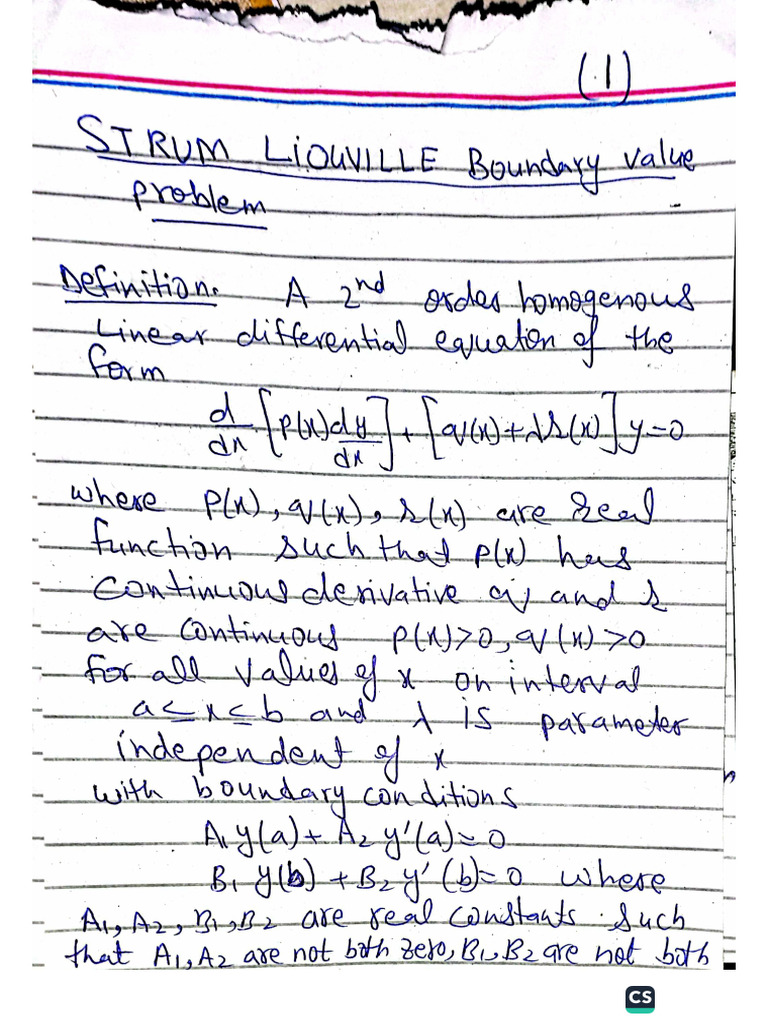 (1)
STRUM LIOUVILLE Boundary value
problem
Definition. A 2nd order homogenous
Linear differential equaton of the
form
d/dx [P(x) dy/dx] + [q(x)+λr(x)] y=0
where P(x), q(x), r(x) are real
function such that p(x) has
continuous derivative q and r
are continuous p(x)>0, q(x)>0
for all values of x on interval
a≤x≤b and λ is parameter
independent of x
with boundary conditions
A₁y(a)+A₂y'(a)=0
B₁y(b)+B₂y'(b)=0 where
A₁, A₂, B₁, B₂ are real constants such
that A₁, A₂ are not both zero, B₁, B₂ are not both
CS